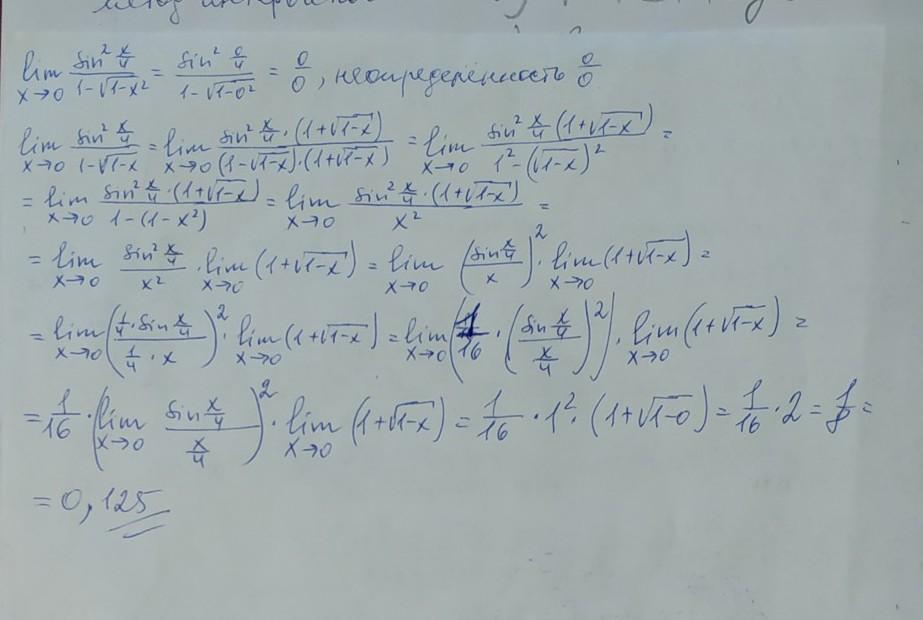 метод интер
lim x→0 sin² x/4 / 1-√1-x² = sin² 0/4 / 1-√1-0² = 0/0, неопределённость 0/0
lim x→0 sin² x/4 / 1-√1-x = lim x→0 sin² x/4 · (1+√1-x) / (1-√1-x)·(1+√1-x) = lim x→0 sin² x/4 (1+√1-x) / 1²-(√1-x)² =
= lim x→0 sin² x/4 · (1+√1-x) / 1-(1-x²) = lim x→0 sin² x/4 · (1+√1-x) / x² =
= lim x→0 sin² x/4 / x² · lim x→0 (1+√1-x) = lim x→0 (sin x/4 / x)² · lim x→0 (1+√1-x) =
= lim x→0 (1/4 · sin x/4 / 1/4 · x)² · lim x→0 (1+√1-x) = lim x→0 (1/16 · (sin x/4 / x/4)²) · lim x→0 (1+√1-x) =
= 1/16 · (lim x→0 sin x/4 / x/4)² · lim x→0 (1+√1-x) = 1/16 · 1² · (1+√1-0) = 1/16 · 2 = 1/8 =
= 0,125